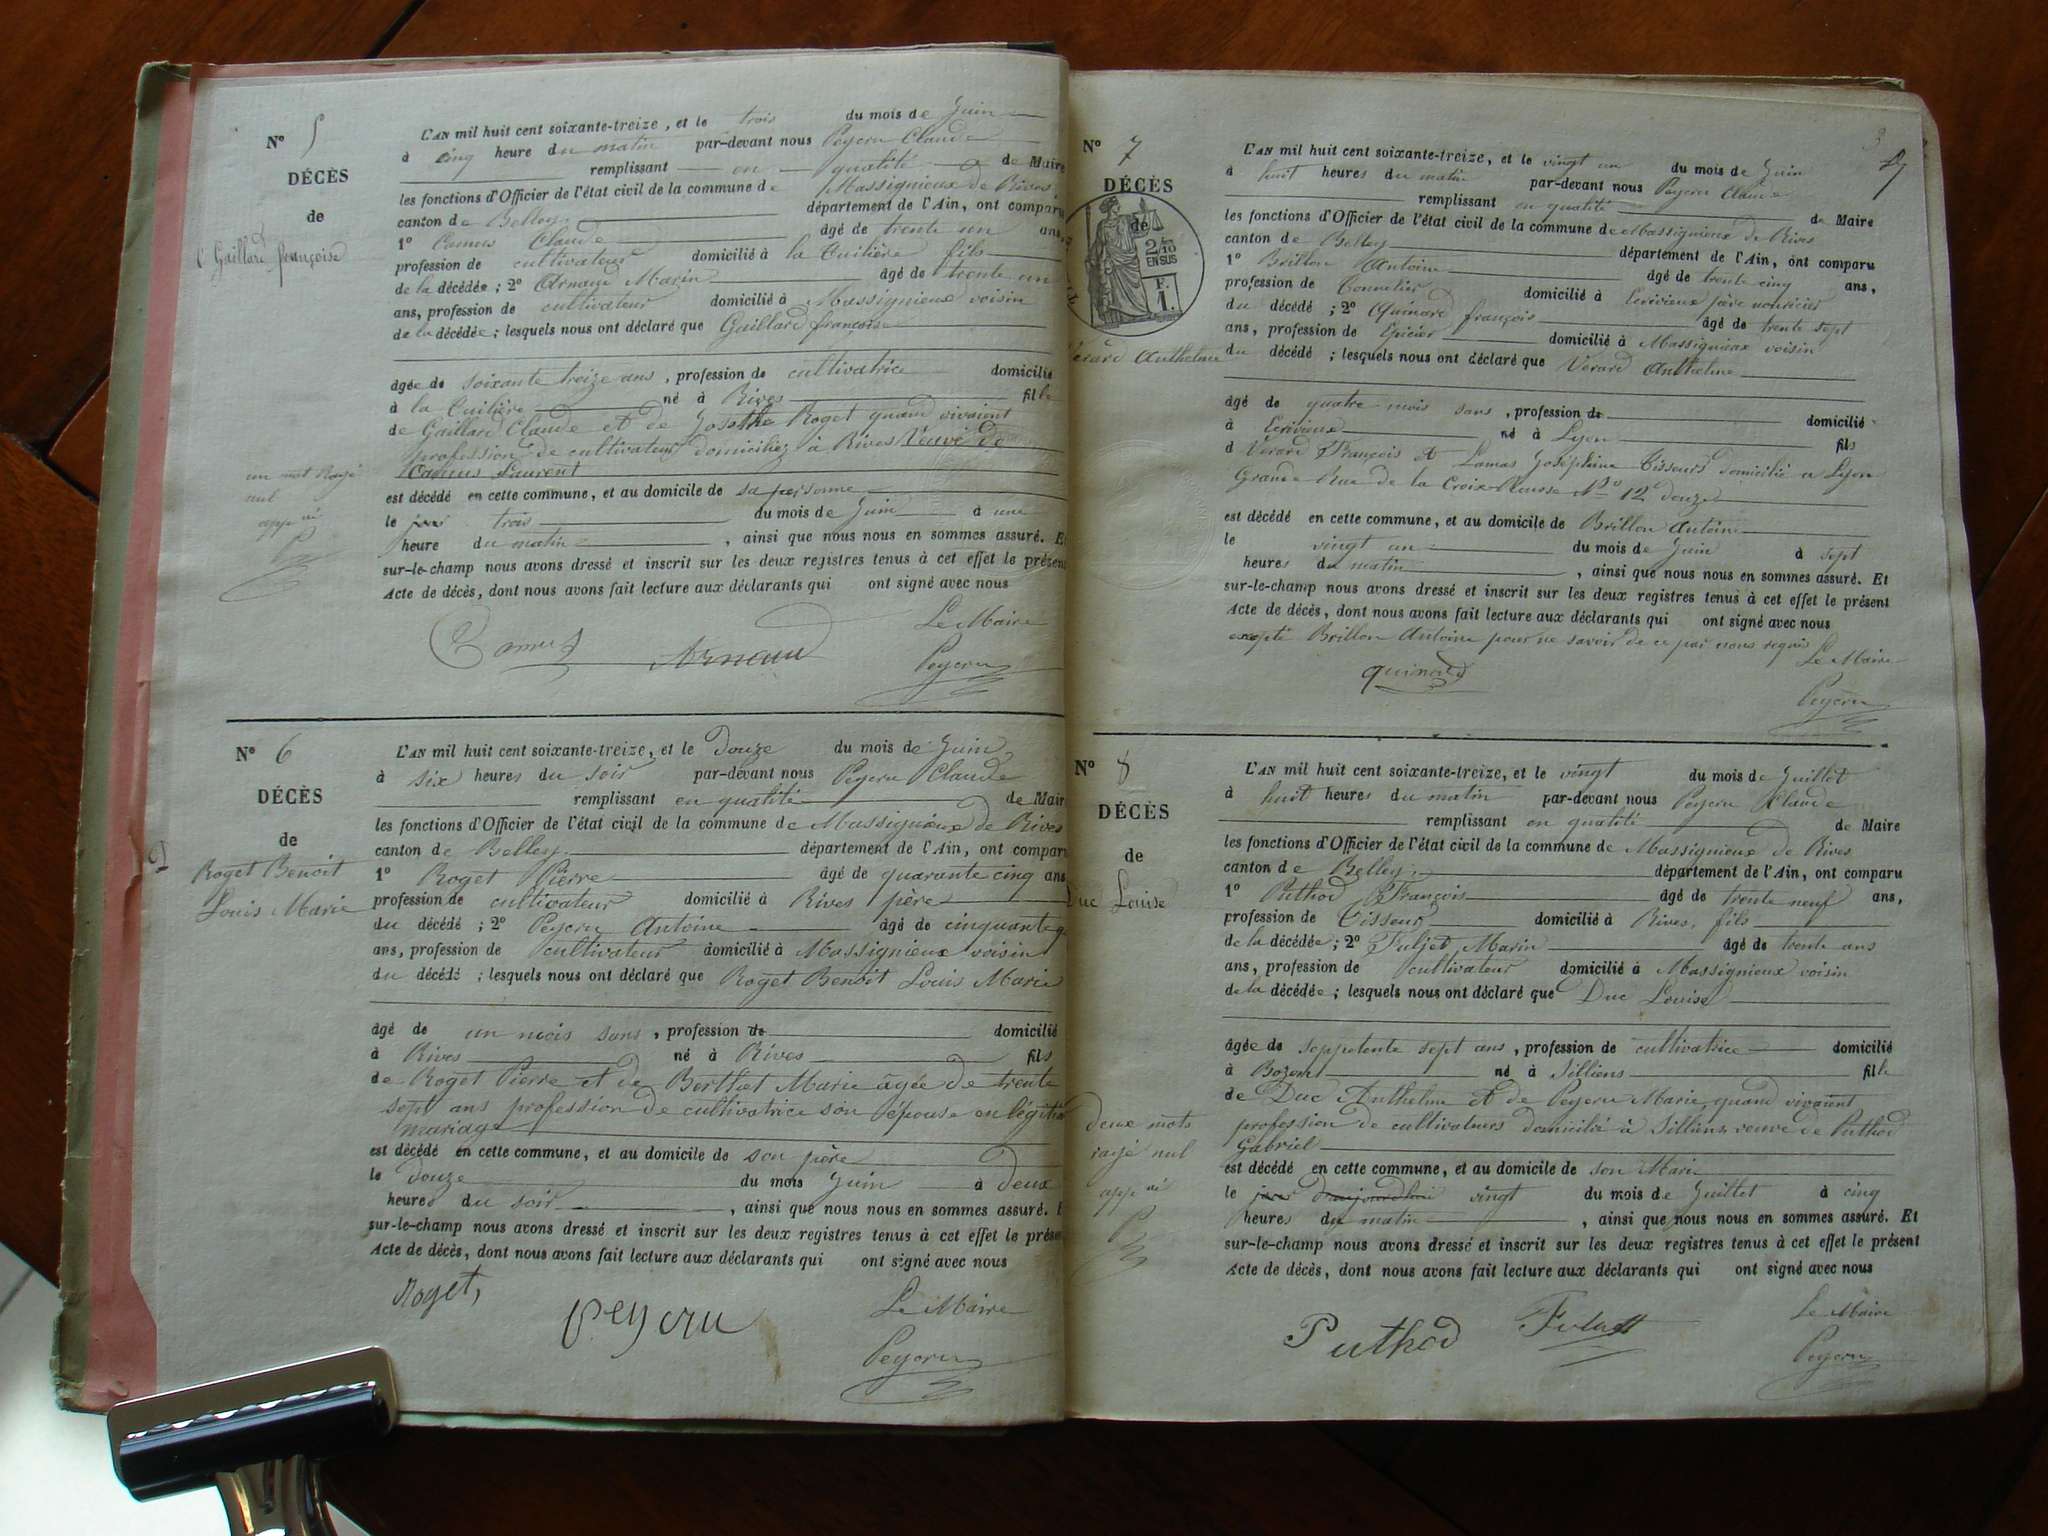 N° 5
DÉCÈS
de
Gaillard françoise
L'AN mil huit cent soixante-treize, et le trois du mois de Juin
à cinq heure du matin par-devant nous Peyeru Claude
remplissant en qualité de Maire
les fonctions d'Officier de l'état civil de la commune de Massignieux de Rives
canton de Belley département de l'Ain, ont comparu
1° Camus Claude âgé de trente un ans,
profession de cultivateur domicilié à la Cuilière fils
de la décédée ; 2° Arnaud Marin âgé de trente un
ans, profession de cultivateur domicilié à Massignieux voisin
de la décédée ; lesquels nous ont déclaré que Gaillard françoise
âgée de soixante treize ans, profession de cultivatrice domicilié
à la Cuilière né à Rives fille
de Gaillard Claude et de Josethe Roget quand vivaient
profession de cultivateur domiciliez à Rives Veuve de
Camus Laurent
un mot Rayé
nul
app vé
est décédé en cette commune, et au domicile de sa personne
le jour trois du mois de Juin à une
heure du matin, ainsi que nous nous en sommes assuré. Et
sur-le-champ nous avons dressé et inscrit sur les deux registres tenus à cet effet le présent
Acte de décès, dont nous avons fait lecture aux déclarants qui ont signé avec nous
Le Maire
Camus Arnaud Peyeru
N° 6
DÉCÈS
de
Roget Benoit
Louis Marie
L'AN mil huit cent soixante-treize, et le Douze du mois de Juin
à six heures du soir par-devant nous Peyeru Claude
remplissant en qualité de Maire
les fonctions d'Officier de l'état civil de la commune de Massignieux de Rives
canton de Belley département de l'Ain, ont comparu
1° Roget Pierre âgé de quarante cinq ans
profession de cultivateur domicilié à Rives père
du décédé ; 2° Peyeru Antoine âgé de cinquante
ans, profession de cultivateur domicilié à Massignieux voisin
du décédé ; lesquels nous ont déclaré que Roget Benoit Louis Marie
âgé de un mois sans, profession de domicilié
à Rives né à Rives fils
de Roget Pierre et de Berthet Marie âgée de trente
sept ans profession de cultivatrice son épouse en légitime
mariage
est décédé en cette commune, et au domicile de son père
le Douze du mois Juin à deux
heures du soir, ainsi que nous nous en sommes assuré. E
sur-le-champ nous avons dressé et inscrit sur les deux registres tenus à cet effet le présen
Acte de décès, dont nous avons fait lecture aux déclarants qui ont signé avec nous
Roget, Peyeru Le Maire
Peyeru
N° 7
DÉCÈS
de
2/10
EN SUS
F.
1.
Verard Anthelme
L'AN mil huit cent soixante-treize, et le vingt un du mois de Juin
à huit heures du matin par-devant nous Peyeru Claude
remplissant en qualité de Maire
les fonctions d'Officier de l'état civil de la commune de Massignieux de Rives
canton de Belley département de l'Ain, ont comparu
1° Brillon Antoine âgé de trente cinq ans,
profession de Tonnelier domicilié à Ecrivieux père nouricier
du décédé ; 2° Quinard françois âgé de trente sept
ans, profession de Epicier domicilié à Massignieux voisin
du décédé ; lesquels nous ont déclaré que Verard Anthelme
âgé de quatre mois sans, profession de domicilié
à Ecrivieux né à Lyon fils
d Verard François et Lamas Joséphine Tisseurs domicilié a Lyon
Grande Rue de la Croix-Rousse N° 12 douze
est décédé en cette commune, et au domicile de Brillon Antoine
le vingt un du mois de Juin à sept
heures du matin, ainsi que nous nous en sommes assuré. Et
sur-le-champ nous avons dressé et inscrit sur les deux registres tenus à cet effet le présent
Acte de décès, dont nous avons fait lecture aux déclarants qui ont signé avec nous
excepté Brillon Antoine pour ne savoir de ce par nous requis
Le Maire
quinard
Peyeru
N° 8
DÉCÈS
de
Duc Louise
L'AN mil huit cent soixante-treize, et le vingt du mois de Juillet
à huit heures du matin par-devant nous Peyeru Claude
remplissant en qualité de Maire
les fonctions d'Officier de l'état civil de la commune de Massignieux de Rives
canton de Belley département de l'Ain, ont comparu
1° Puthod François âgé de trente neuf ans,
profession de Tisseur domicilié à Rives, fils
de la décédée ; 2° Fuljet Marin âgé de trente ans
ans, profession de cultivateur domicilié à Massignieux voisin
de la décédée ; lesquels nous ont déclaré que Duc Louise
âgée de seppetente sept ans, profession de cultivatrice domicilié
à Bozem né à Silliens fille
de Duc Anthelme et de Peyeru Marie, quand vivaient
profession de cultivateurs domicilié à Silliens veuve de Puthod
Gabriel
deux mots
rayé nul
app vé
est décédé en cette commune, et au domicile de son Mari
le jour d'aujourdhui vingt du mois de Juillet à cinq
heures du matin, ainsi que nous nous en sommes assuré. Et
sur-le-champ nous avons dressé et inscrit sur les deux registres tenus à cet effet le présent
Acte de décès, dont nous avons fait lecture aux déclarants qui ont signé avec nous
Puthod Le Maire
Peyeru